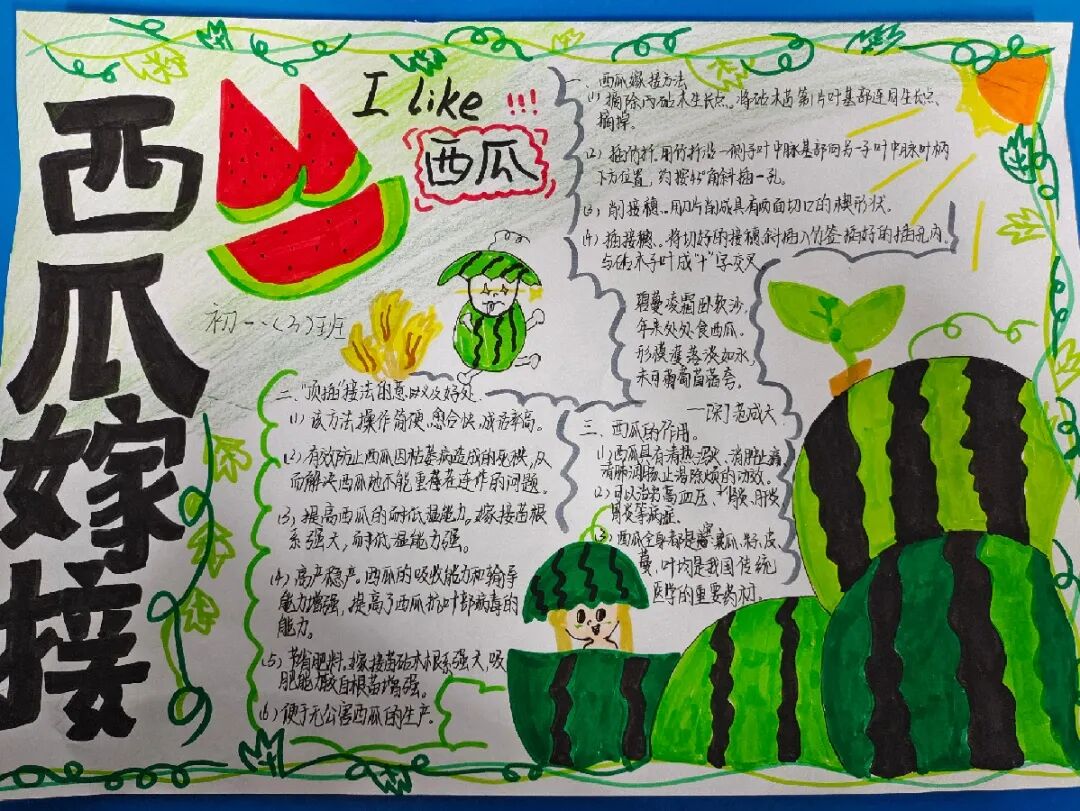 西瓜嫁接
I like !!!
西瓜
初一、(3)班
一、西瓜嫁接方法
(1) 摘除内砧木生长点、将砧木苗第1片叶基部连同生长点、
摘掉。
(2) 插竹扦、用竹扦沿一侧子叶中脉基部向另一子叶中脉叶柄
下方位置，约按45°角斜插一孔。
(3) 削接穗、用刀片削成具有两面切口的楔形状。
(4) 插接穗、将切好的接穗斜插入竹签插好的插孔内、
与砧木子叶成"十"字交叉
碧蔓凌霜卧软沙，
年来处处食西瓜。
形模濩落淡如水，
未可葡萄苜蓿夸。
——[宋]范成大
二、"顶插"接法的意以及好处
(1) 该方法操作简便，愈合快，成活率高。
(2) 有效防止西瓜因枯萎病造成的死秧，从
而解决西瓜地不能重茬连作的问题。
(3) 提高西瓜的耐低温能力。嫁接苗根
系强大，耐低温能力强。
(4) 高产稳产。西瓜的吸收能力和输导
能力增强，提高了西瓜抗叶部病毒的
能力。
(5) 节省肥料。嫁接苗砧木根系强大，吸
肥能力较自根苗增强。
(6) 便于无公害西瓜的生产。
三、西瓜的作用。
(1) 西瓜具有清热解火、消肿
止渴除烦的功效。
(2) 可以治疗高血压、
肾炎等病症。
(3) 西瓜全身都是瓜、皮、
蔓、叶均是我国传统
医学的重要药材。